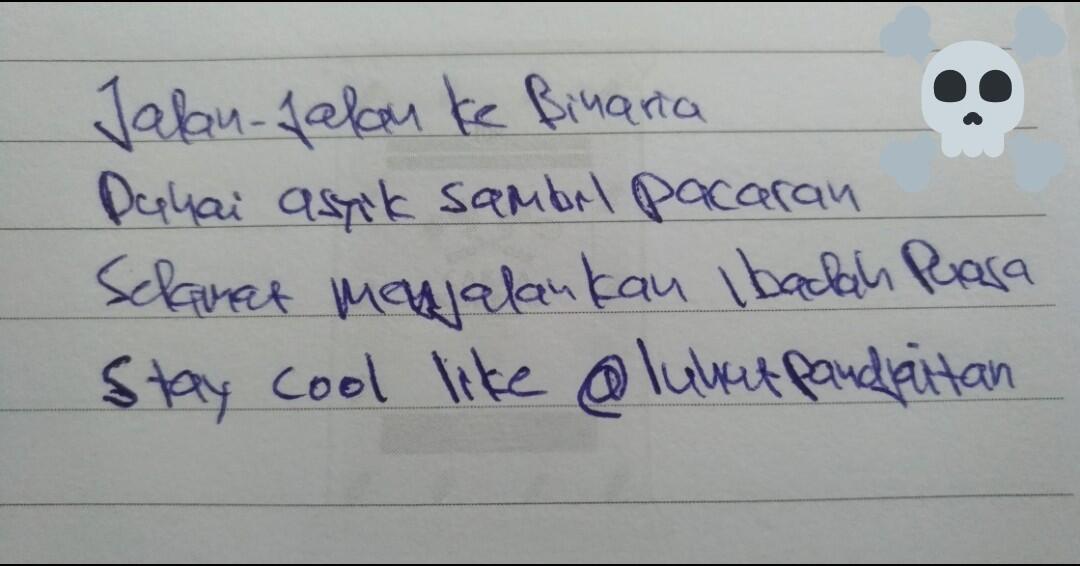 Jalan-Jalan ke Binaria
Duhai asyik sambil pacaran
Selamat menjalankan Ibadah Puasa
Stay cool like @luhutpandjaitan